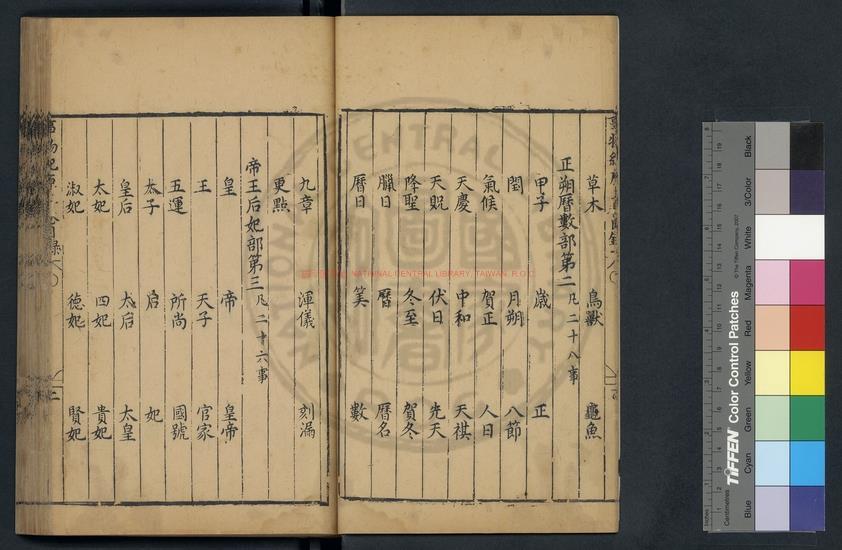 草木 鳥獸 龜魚
正朔曆數部第二 凡二十八事
甲子 歲 正
閏 月朔 八節
氣候 賀正 人日
天慶 中和 天祺
天貺 伏日 先天
降聖 冬至 賀冬
臘日 曆 曆名
曆日 筭 數
九章 渾儀 刻漏
更點
帝王后妃部第三 凡二十六事
皇 帝 皇帝
王 天子 官家
五運 所尚 國號
太子 后 妃
皇后 太后 太皇
太妃 四妃 貴妃
淑妃 德妃 賢妃
NATIONAL CENTRAL LIBRARY, TAIWAN, R.O.C.
TIFFEN Color Control Patches
© The Tiffen Company, 2007
Centimetres
Inches
Blue
Cyan
Green
Yellow
Red
Magenta
White
3/Color
Black